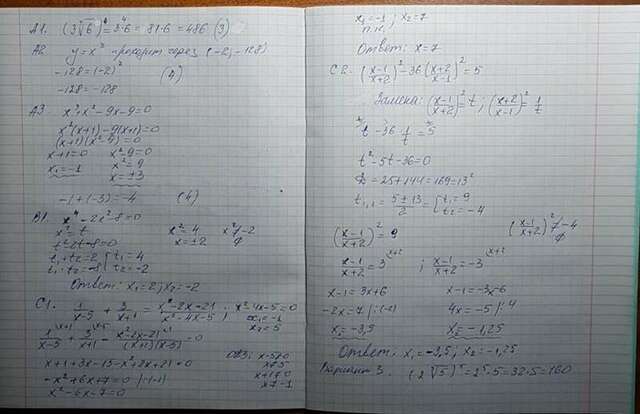 A1. (3∜6)⁴ = 3⁴·6 = 81·6 = 486 (3)
A2. y = x⁷ проходит через (-2; -128)
-128 = (-2)⁷
-128 = -128 (4)
A3. x³ + x² - 9x - 9 = 0
x²(x+1) - 9(x+1) = 0
(x+1)(x²-9) = 0
x+1=0 x²-9=0
x=-1 x²=9
x=±3
-1+(-3)=-4 (4)
B1. x⁴ - 2x² - 8 = 0
x² = t x²=4 x²≠-2
t²-2t-8=0 x=±2 ∅
t₁+t₂=2 t₁=4
t₁·t₂=-8 t₂=-2
Ответ: x₁=2; x₂=-2
C1. 1/(x-5) + 3/(x+1) = (x²-2x-21)/(x²-4x-5); x²-4x-5=0
x₁=-1
x₂=5
1/(x-5) + 3/(x+1) - (x²-2x-21)/((x+1)(x-5)) = 0
x+1+3x-15-x²+2x+21=0 ОДЗ: x-5≠0
x≠5
-x²+6x+7=0 |·(-1) x+1≠0
x²-6x-7=0 x≠-1
x₁=-1; x₂=7
п.к.
Ответ: x=7
C2. ((x-1)/(x+2))² - 36((x+2)/(x-1))² = 5
Замена: ((x-1)/(x+2))² = t; ((x+2)/(x-1))² = 1/t
t - 36 1/t = 5
t²-5t-36=0
D=25+144=169=13²
t₁,₂ = (5±13)/2 = t₁=9
t₂=-4
((x-1)/(x+2))² = 9 ((x-1)/(x+2))² ≠ -4
∅
(x-1)/(x+2) = 3 |·(x+2) ; (x-1)/(x+2) = -3 |·(x+2)
x-1=3x+6 x-1=-3x-6
-2x=7 |:(-2) 4x=-5 |:4
x=-3,5 x=-1,25
Ответ: x₁=-3,5; x₂=-1,25
Вариант 3. (2⁵√5)⁵=2⁵·5=32·5=160